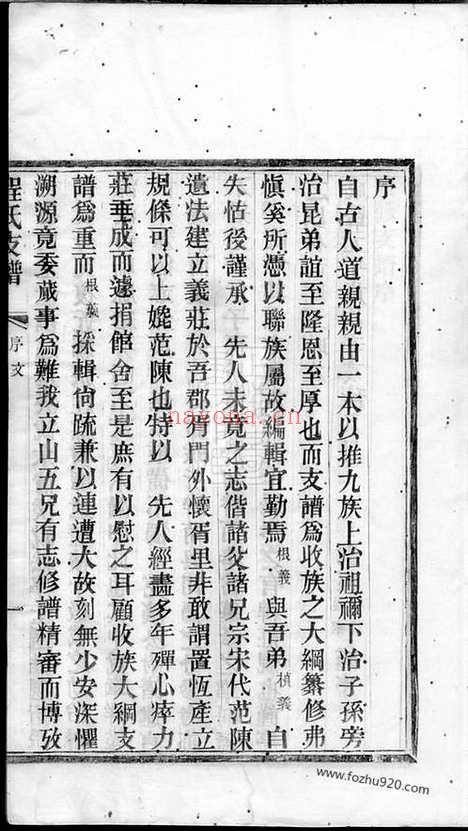 序
自古人道親親由一本以推九族上治祖禰下治子孫旁
治昆弟誼至隆恩至厚也而支譜爲收族之大綱纂修弗
愼奚所憑以聯族屬故編輯宜勤焉根義與吾弟楨義自
失怙後謹承 先人未竟之志偕諸父諸兄宗宋代范陳
遺法建立義莊於吾郡胥門外懷胥里非敢謂置恆產立
規條可以上媲范陳也特以 先人經畫多年殫心瘁力
莊垂成而遽捐館舍至是庶有以慰之耳顧收族大綱支
譜爲重而根義採輯尙疏兼以連遭大故刻無少安深懼
溯源竟委蕆事爲難我立山五兄有志修譜精審而博攷
程氏支譜
序文
一
nayona.cn
www.fozhu920.com